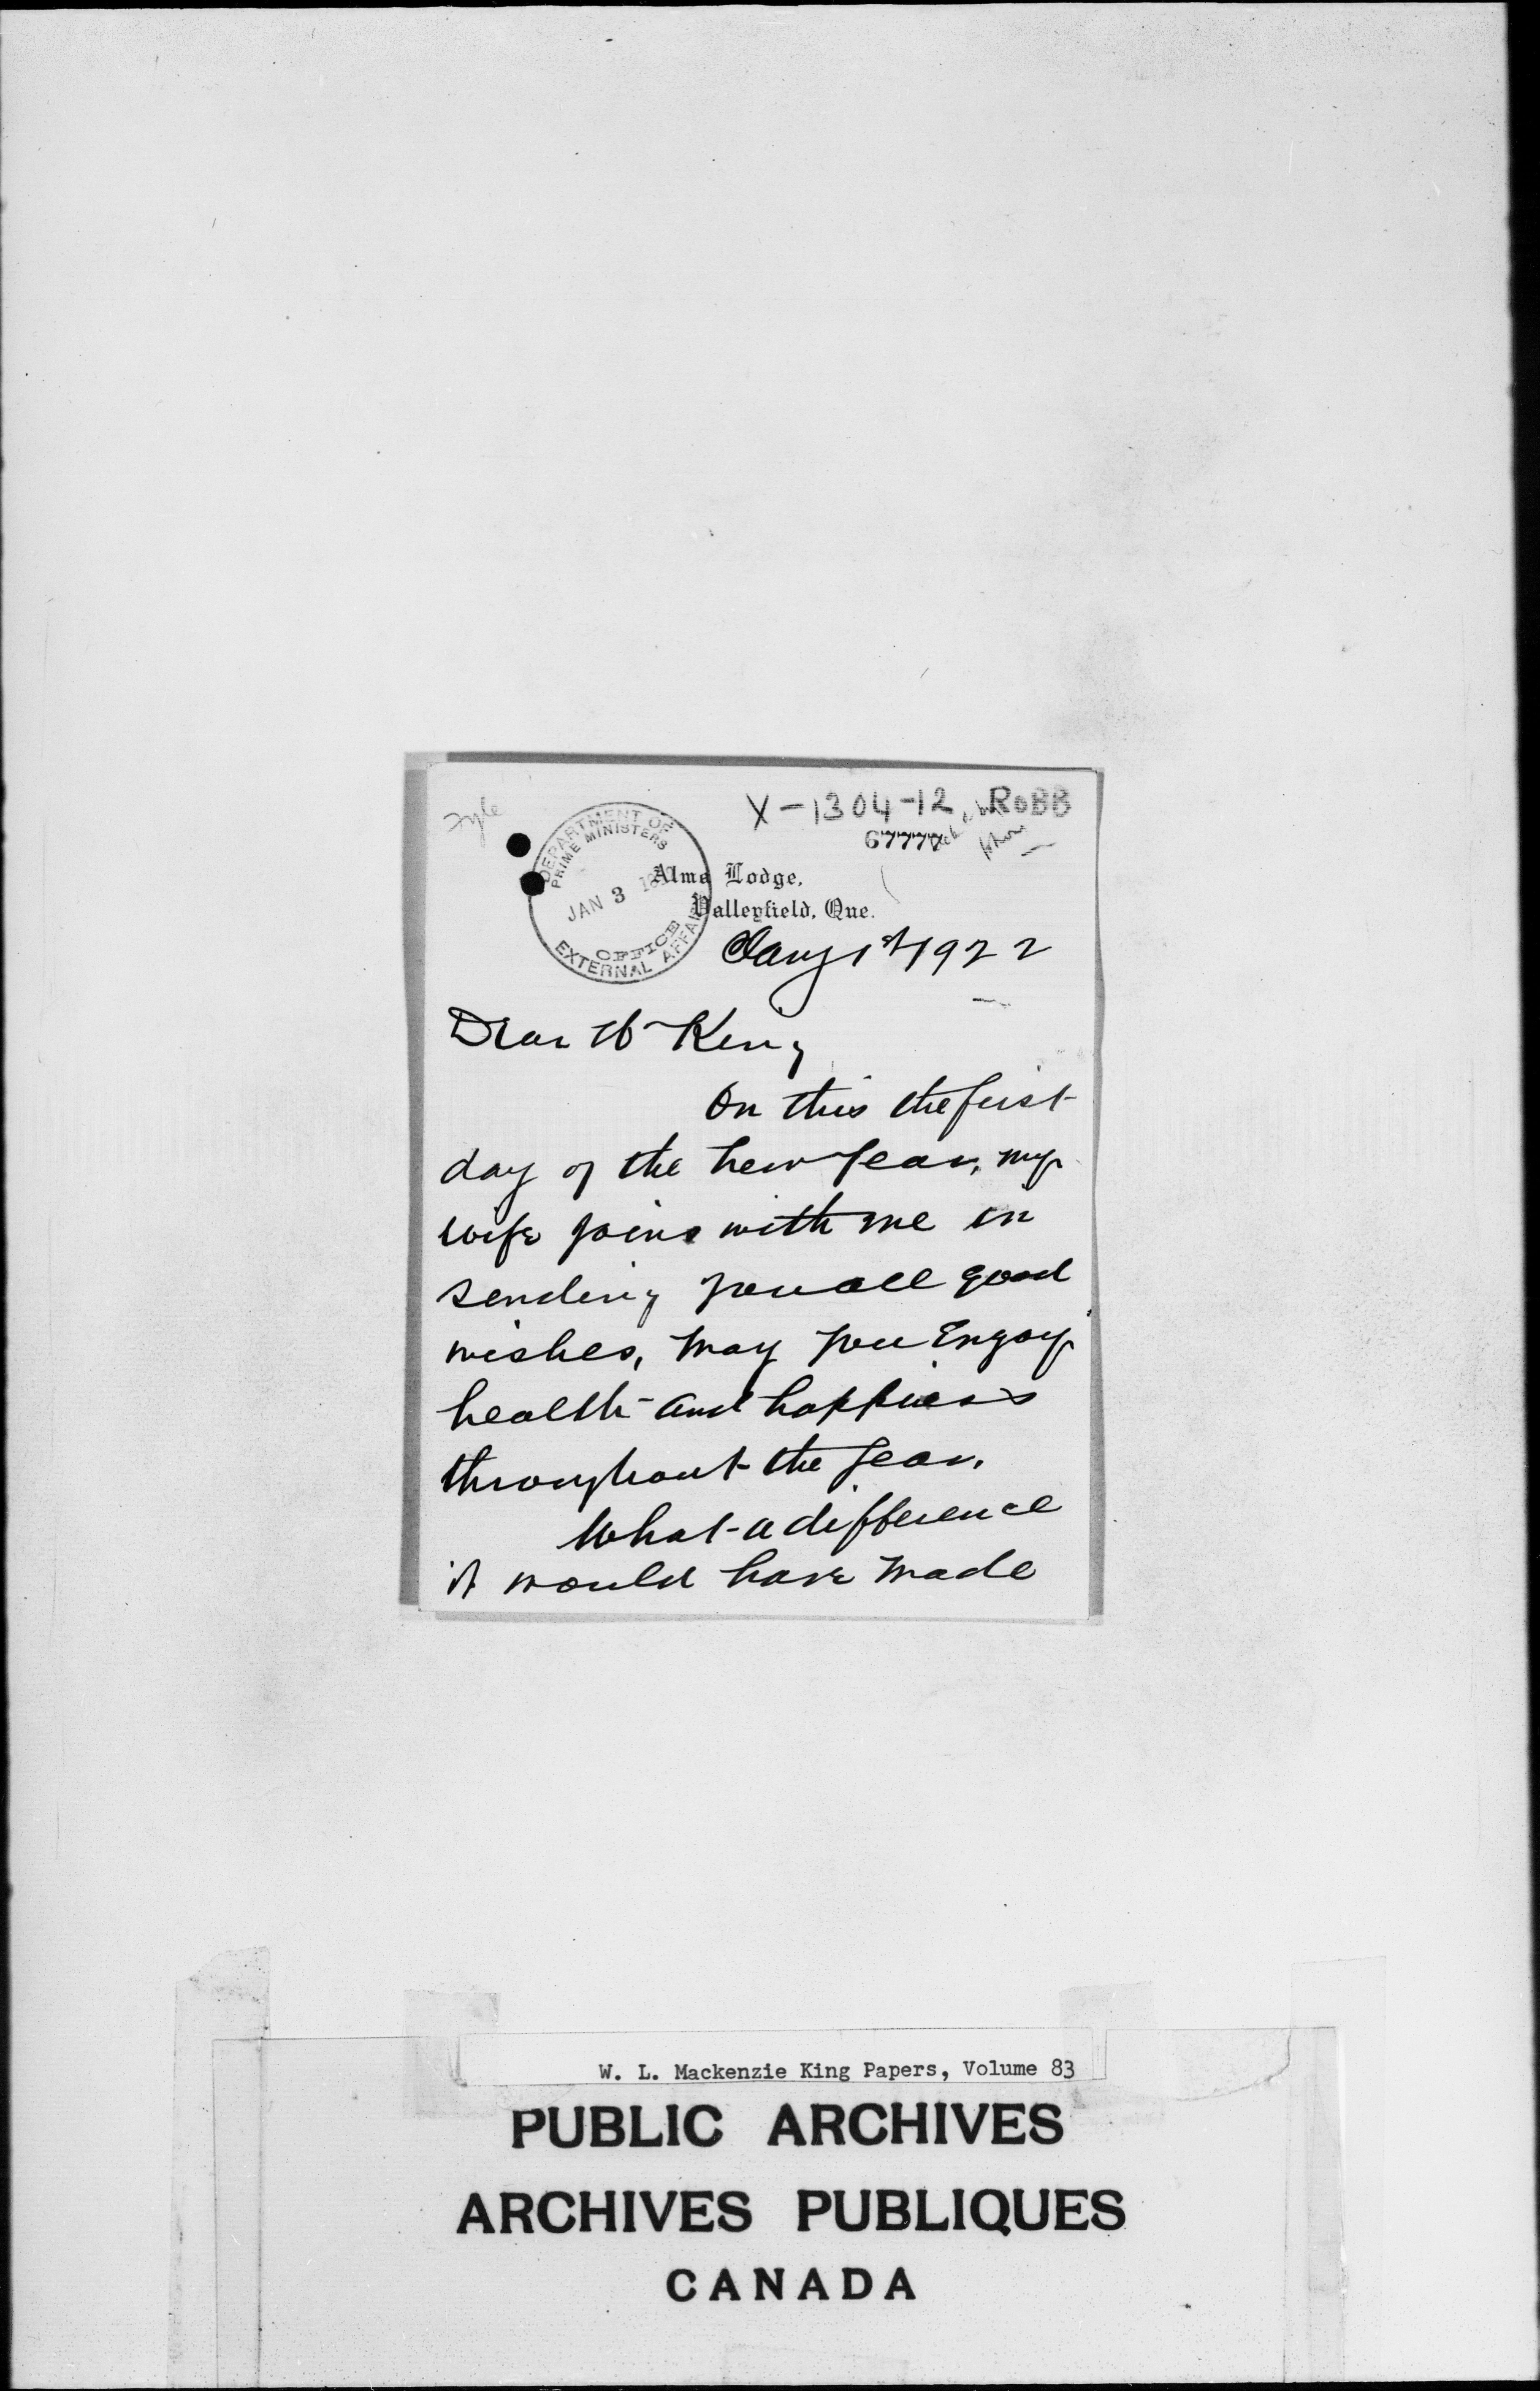 Fyle
X-1304-12. ROBB
DEPARTMENT OF
PRIME MINISTERS
JAN 3
OFFICE
EXTERNAL AFFAI
Alma Lodge,
Valleyfield, Que.
Jany 1st 1922
Dear Mr King
On this the first
day of the New Year, my
wife joins with me in
sending you all good
wishes, may you Enjoy
health and happiness
throughout the Year.
What a difference
it would have made
W. L. Mackenzie King Papers, Volume 83
PUBLIC ARCHIVES
ARCHIVES PUBLIQUES
CANADA